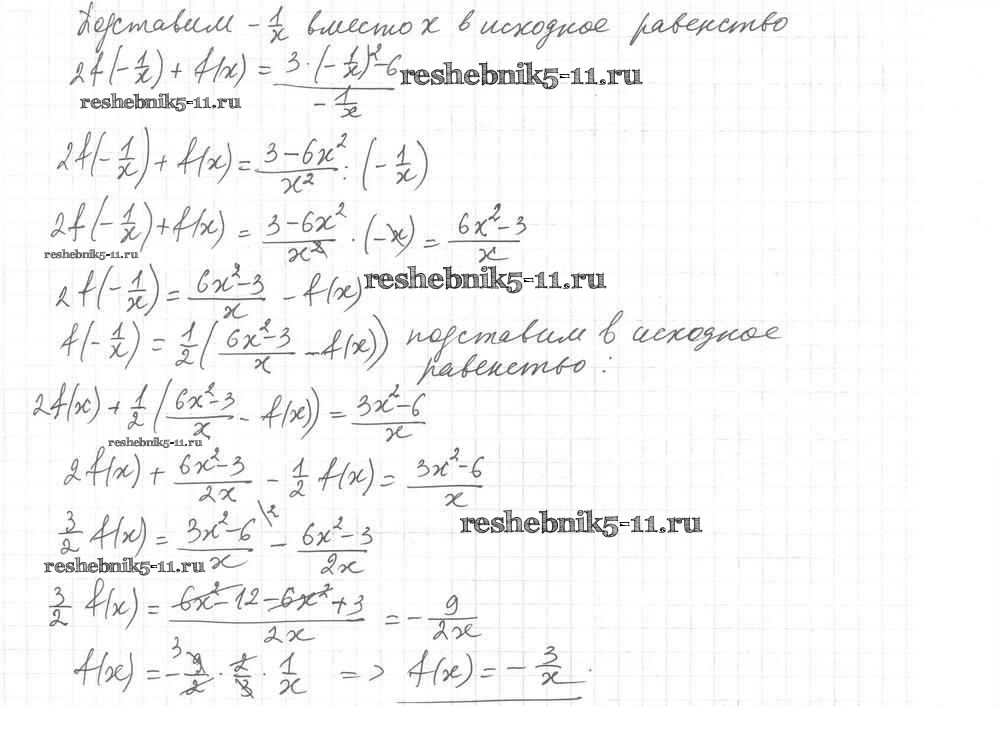 Подставим -1/x вместо x в исходное равенство
2f(-1/x) + f(x) = (3·(-1/x)²-6)/(-1/x)
reshebnik5-11.ru
reshebnik5-11.ru
2f(-1/x) + f(x) = (3-6x²)/x² : (-1/x)
2f(-1/x) + f(x) = (3-6x²)/x² · (-x) = (6x²-3)/x
reshebnik5-11.ru
2f(-1/x) = (6x²-3)/x - f(x)
reshebnik5-11.ru
f(-1/x) = 1/2((6x²-3)/x - f(x)) подставим в исходное
равенство:
2f(x) + 1/2((6x²-3)/x - f(x)) = (3x²-6)/x
reshebnik5-11.ru
2f(x) + (6x²-3)/2x - 1/2 f(x) = (3x²-6)/x
3/2 f(x) = (3x²-6)/x \2 - (6x²-3)/2x
reshebnik5-11.ru
reshebnik5-11.ru
3/2 f(x) = (6x²-12-6x²+3)/2x = -9/2x
f(x) = -9/2 3 · 2/3 · 1/x => f(x) = -3/x.